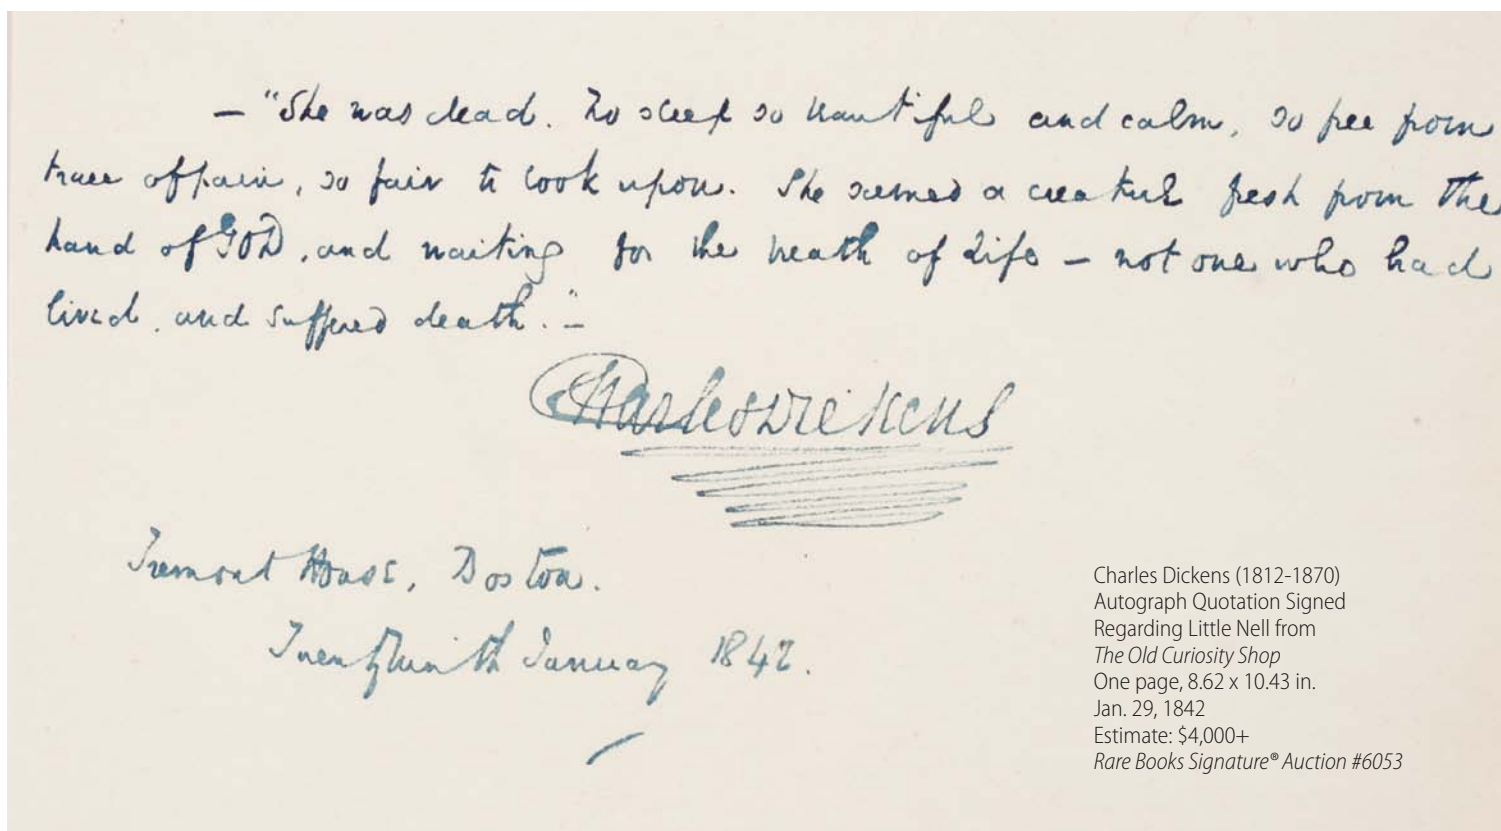 — "She was dead. No sleep so beautiful and calm, so free from
trace of pain, so fair to look upon. She seemed a creature fresh from the
hand of GOD, and waiting for the breath of Life — not one who had
lived, and suffered death." —
Charles Dickens
Tremont House, Boston.
Twenty Ninth January 1842.
Charles Dickens (1812-1870)
Autograph Quotation Signed
Regarding Little Nell from
The Old Curiosity Shop
One page, 8.62 x 10.43 in.
Jan. 29, 1842
Estimate: $4,000+
Rare Books Signature® Auction #6053